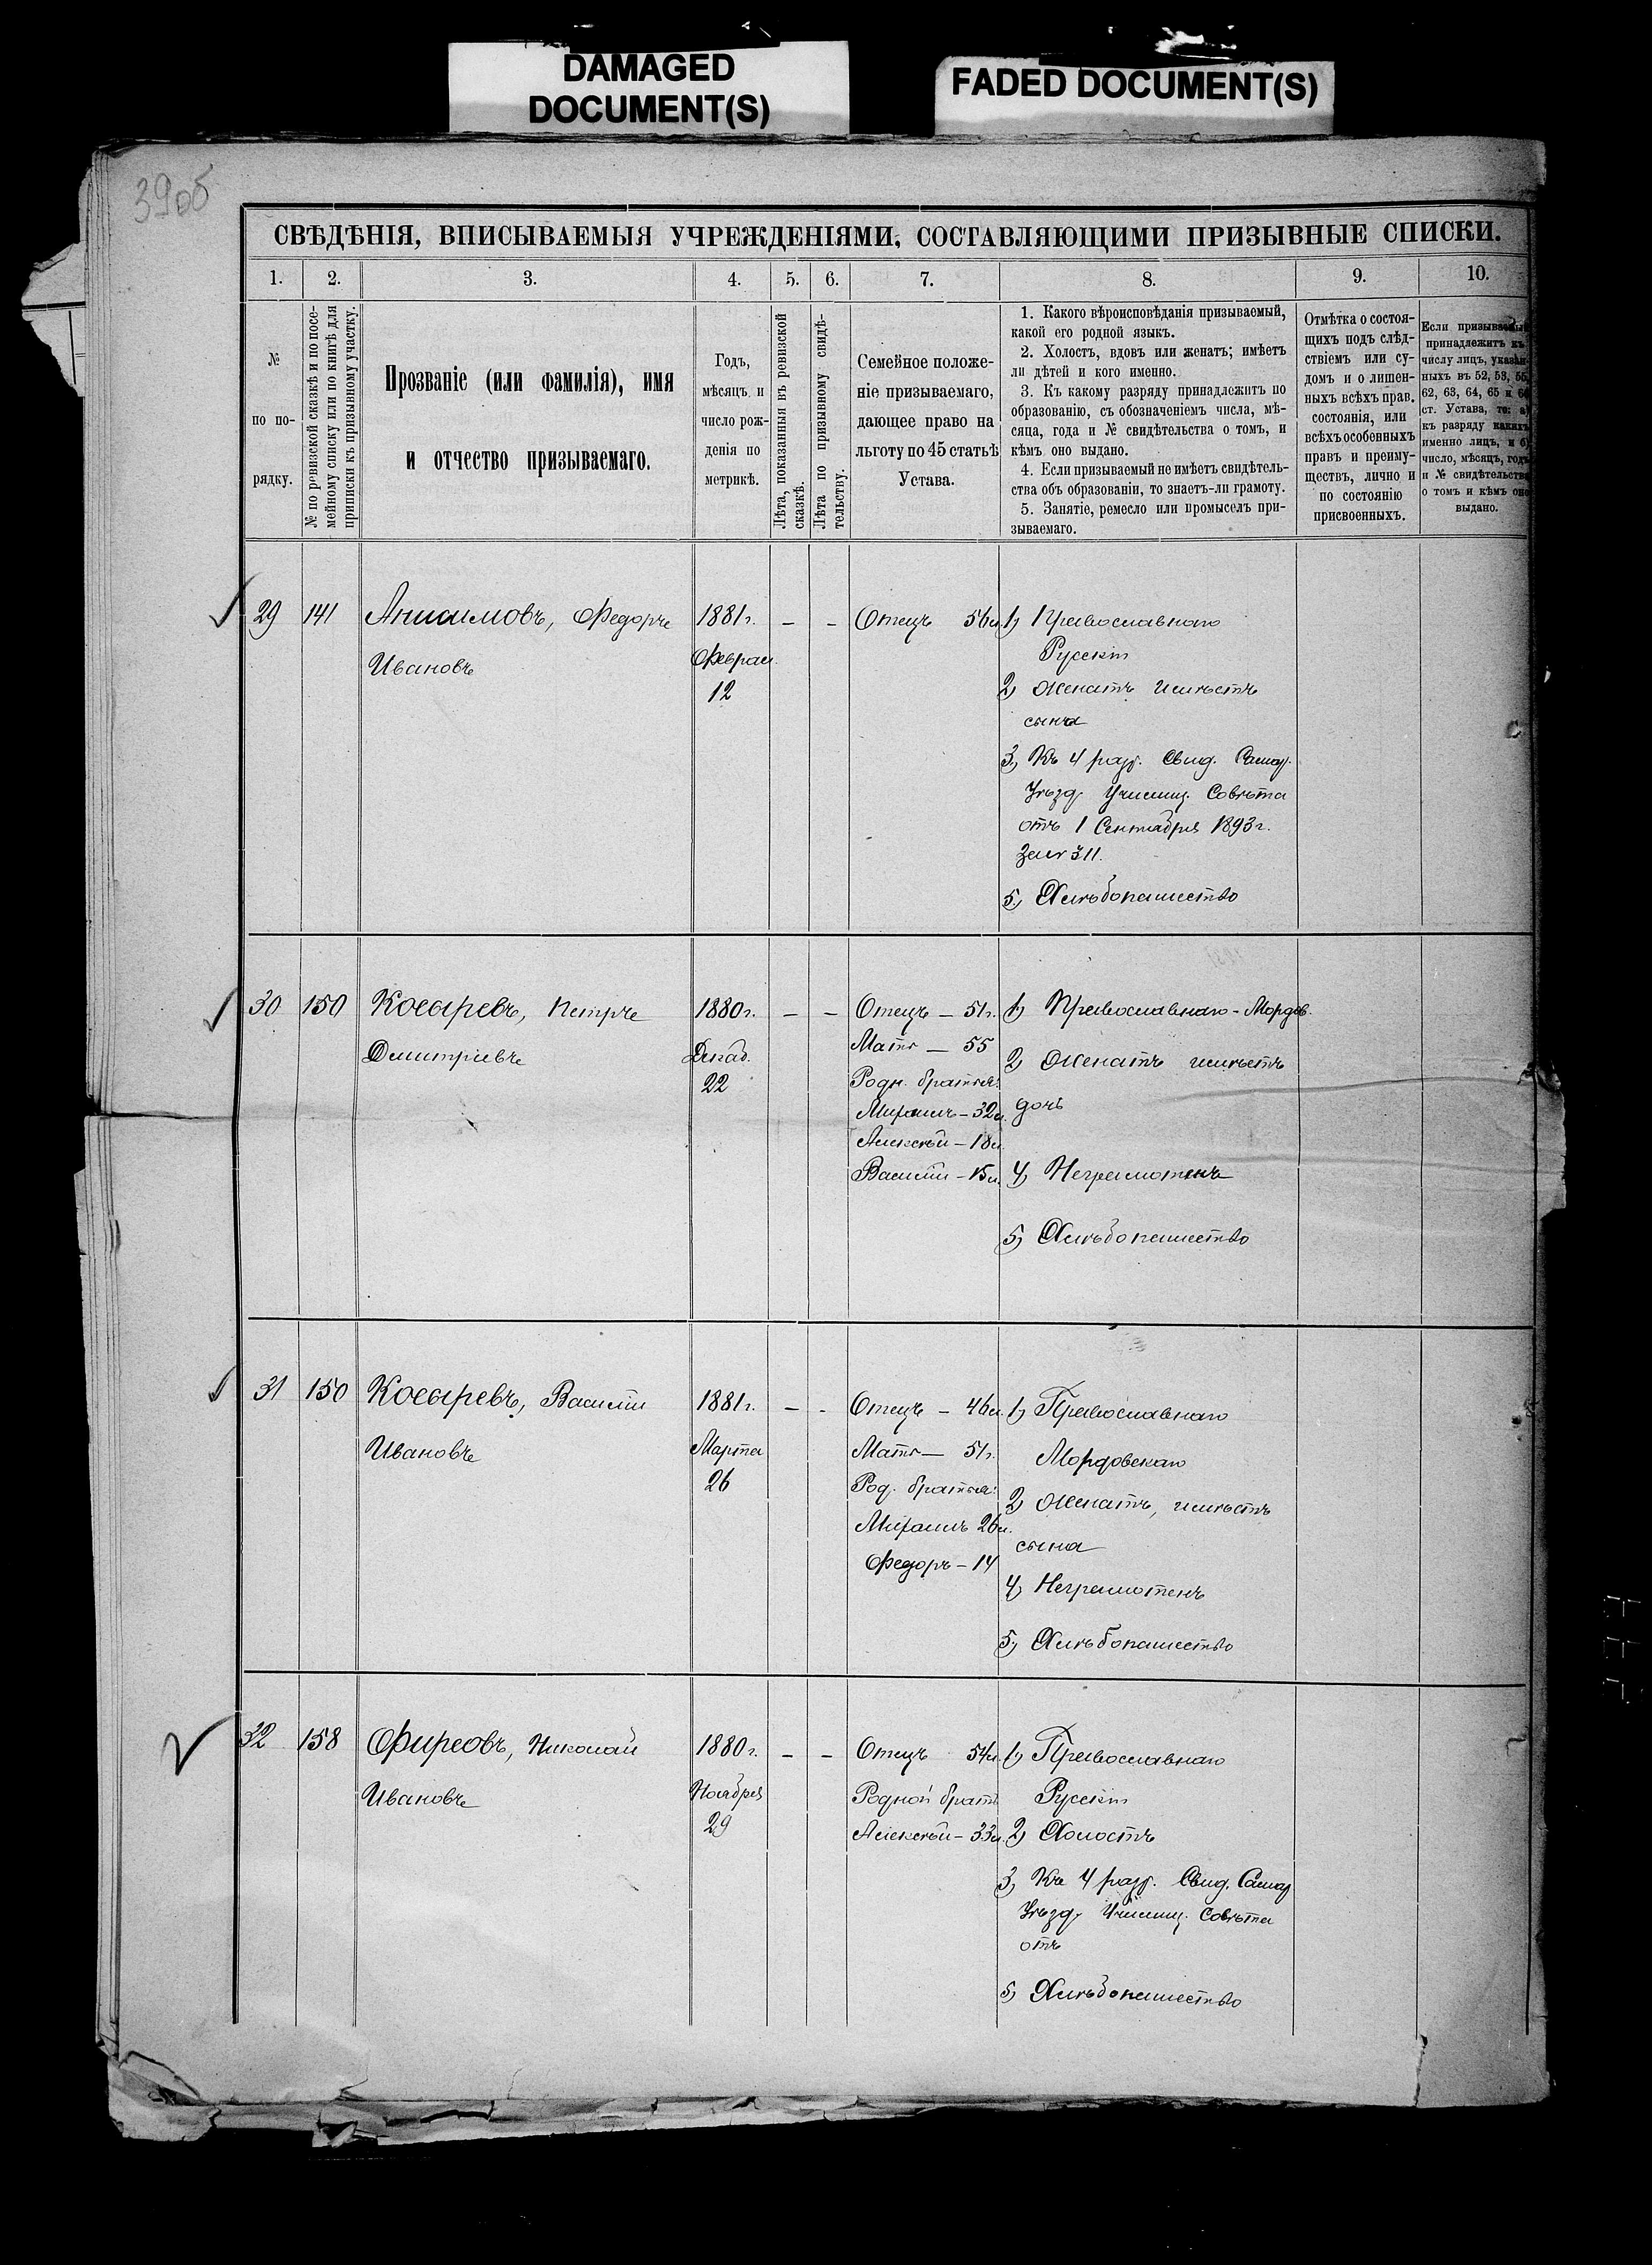 DAMAGED
DOCUMENT(S)
FADED DOCUMENT(S)
39об
СВѢДѢНІЯ, ВПИСЫВАЕМЫЯ УЧРЕЖДЕНІЯМИ, СОСТАВЛЯЮЩИМИ ПРИЗЫВНЫЕ СПИСКИ.
1. 2. 3. 4. 5. 6. 7. 8. 9. 10.
№
по по-
рядку.
№ по ревизской сказкѣ и по посе-
мейному списку или по книгѣ для
приписки къ призывному участку.
Прозваніе (или фамилія), имя
и отчество призываемаго.
Годъ,
мѣсяцъ и
число рож-
денія по
метрикѣ.
Лѣта, показанныя въ ревизской
сказкѣ.
Лѣта по призывному свидѣ-
тельству.
Семейное положе-
ніе призываемаго,
дающее право на
льготу по 45 статьѣ
Устава.
1. Какого вѣроисповѣданія призываемый,
какой его родной языкъ.
2. Холостъ, вдовъ или женатъ; имѣетъ
ли дѣтей и кого именно.
3. Къ какому разряду принадлежитъ по
образованію, съ обозначеніемъ числа, мѣ-
сяца, года и № свидѣтельства о томъ, и
кѣмъ оно выдано.
4. Если призываемый не имѣетъ свидѣтель-
ства объ образованіи, то знаетъ-ли грамоту.
5. Занятіе, ремесло или промыселъ при-
зываемаго.
Отмѣтка о состоя-
щихъ подъ слѣд-
ствіемъ или су-
домъ и о лишен-
ныхъ всѣхъ прав.
состоянія, или
всѣхъ особенныхъ
правъ и преиму-
ществъ, лично и
по состоянію
присвоенныхъ.
Если призываемый
принадлежитъ къ
числу лицъ, указан-
ныхъ въ 52, 53, 55,
62, 63, 64, 65 и 66
ст. Устава, то: а)
къ разряду какихъ
именно лицъ, и б)
число, мѣсяцъ, годъ
и № свидѣтельства
о томъ и кѣмъ оно
выдано.
29 141 Анисимовъ, Федоръ
Ивановъ
1881г.
Феврал.
12
– –
Отецъ 56л.
1) Православнаго
Русскій
2) Женатъ имѣетъ
сына
3) Къ 4 разр. Свид. Самар.
Уѣзд. Училищ. Совѣта
отъ 1 Сентября 1893г.
за № 311.
5) Хлѣбопашество
30 150 Косыревъ, Петръ
Дмитріевъ
1880г.
Декаб.
22
– –
Отецъ – 51г.
Мать – 55
Родн. братья:
Михаилъ – 32л.
Алексѣй – 18л.
Василій – 15л.
1) Православнаго - Мордов.
2) Женатъ имѣетъ
дочь
4) Неграмотенъ
5) Хлѣбопашество
31 150 Косыревъ, Василій
Ивановъ
1881г.
Марта
26
– -
Отецъ – 46л.
Мать – 51г.
Род. братья:
Михаилъ 26л.
Федоръ – 14
1) Православнаго
Мордовскаго
2) Женатъ, имѣетъ
сына
4) Неграмотенъ
5) Хлѣбопашество
32 158 Фирсовъ, Николай
Ивановъ
1880г.
Ноября
29
– –
Отецъ 54л.
Родной братъ
Алексѣй – 33л.
1) Православнаго
Русскій
2) Холостъ
3) Къ 4 разр. Свид. Самар
Уѣзд. Училищ. Совѣта
отъ
5) Хлѣбопашество